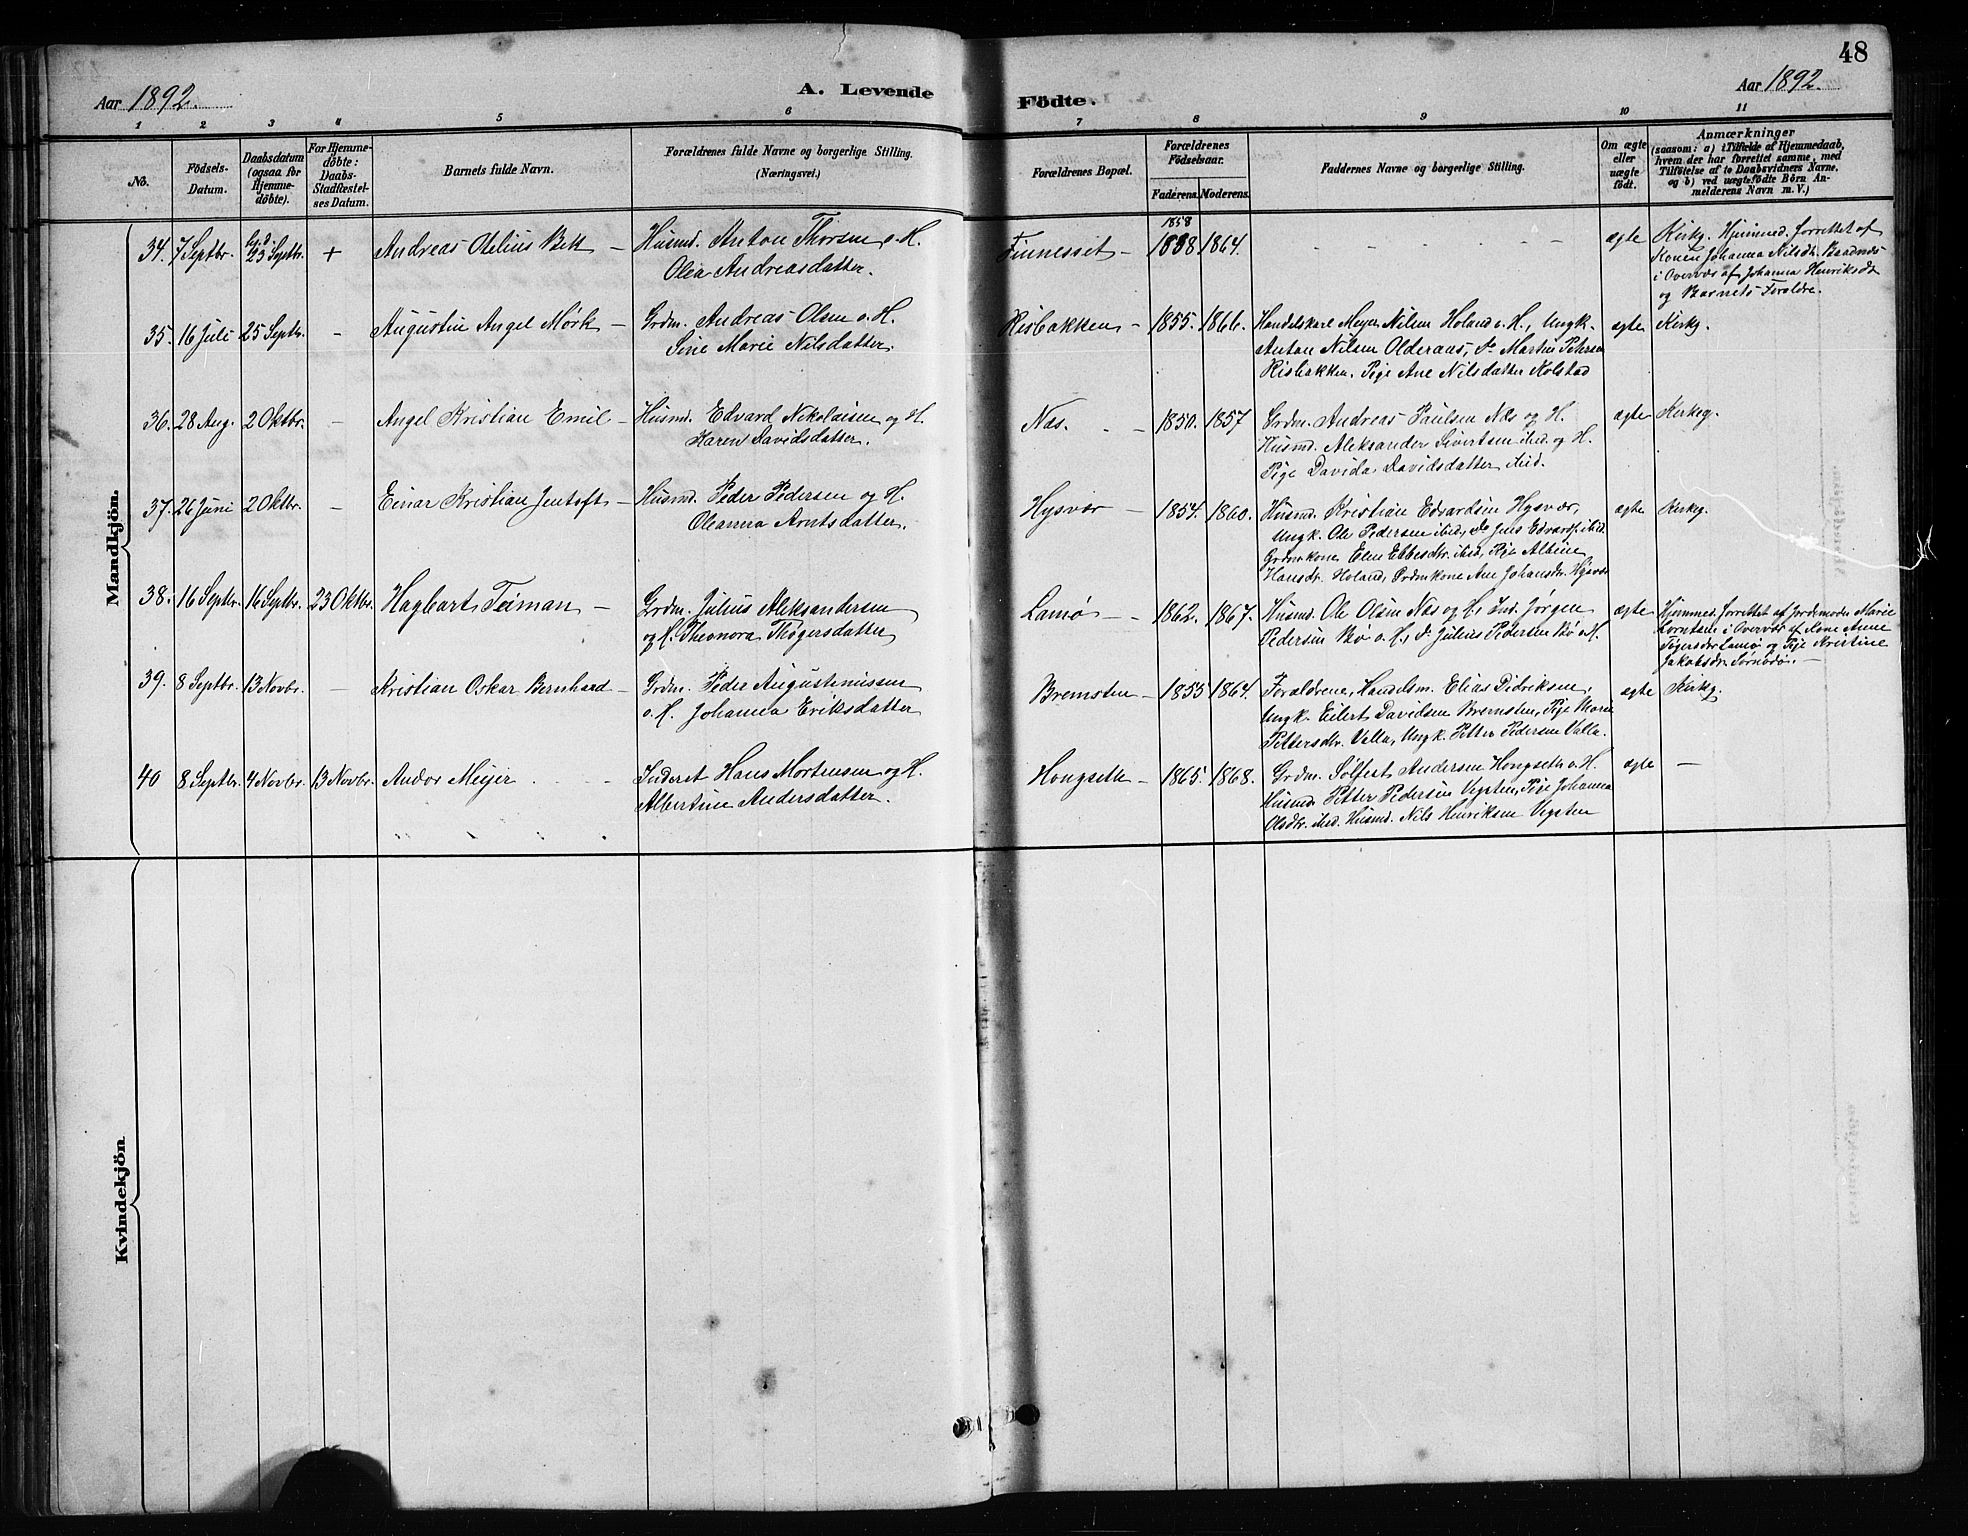 48
Aar 1892.
A. Levende
Födte.
Aar 1892.
1 2 3 4 5 6 7 8 9 10 11
No.
Födsels-
Datum.
Daabsdatum
(ogsaa for
Hjemme-
døbte).
For Hjemme-
døbte:
Daabs-
Stadfæstel-
ses Datum.
Barnets fulde Navn.
Forældrenes fulde Navne og borgerlige Stilling.
(Næringsvei.)
Forældrenes Bopæl.
Forældrenes
Födselsaar.
Faderens. Moderens.
Faddernes Navne og borgerlige Stilling.
Om ægte
eller
uægte
födt.
Anmærkninger
(saasom: a) i Tilfælde af Hjemmedaab,
hvem der har forrettet samme, med
Tilföielse af to Daabsvidners Navne,
og b) ved uægte födte Börn An-
melderens Navn m. V.)
Mandkjön.
34. 7 Septbr. 23 Septr. + Andreas Otelius Bek – Husmd. Anton Thorsen o. H.
Olea Andreasdatter.
Finnesset – 1858 1864. ægte Kirkg. Hjemmed. forrettet af
Konen Johanna Nilsdr. Baadnes
i Overvær af Johanna Henriksdr
og Barnets Forældre.
35. 16 Juli 25 Septr. – Augustin Angel Mørk – Grdm. Andreas Olsen o. H.
Sine Marie Nilsdatter.
Risbakken – 1855. 1866. Handelskarl Meyer Nilsen Holand o. H., Ungk. ægte Kirkg.
Anton Nilsen Olderaas, do Martin Petersen
Risbakken. Pige Ane Nilsdatter Kolstad
36. 28 Aug. 2 Oktbr. – Angel Kristian Emil – Husmd. Edvard Nikolaisen og H.
Karen Davidsdatter.
Næs. – 1850. 1857 Grdm. Andreas Paulsen Næs og H. ægte Kirkeg.
Husmd. Aleksander Sivertsen ibid. og H.
Pige Davida Davidsdatter ibid.
37. 26 Juni 2 Oktbr. – Einar Kristian Jentoft – Husmd. Peder Pedersen og H.
Oleanna Arntsdatter.
Hysvær – 1854. 1860. Husmd. Kristian Edvardsen Hysvær, ægte Kirkg.
Ungk. Ole Pedersen ibid., do Jens Edvards. ibid.
Grdmkone Elen Ebbesdr. ibid., Pige Albine
Hansdr. Holand, Grdmkone Ane Johansdr. Hysvær
38. 16 Septbr. 16 Septbr. 23 Oktbr. Hagbart Teiman – Grdm. Julius Aleksandersen
og H. Theonora Thøgersdatter
Lamø – 1862. 1867. Husmd. Ole Olsen Næs og H., Ind. Jørgen ægte Hjemmed. forrettet af Jordemoder Marie
Pedersen Bø o. H., do Julius Pedersen Bø o. H. Lorntsen i Overvær af Kone Anne
Tøgersdr. Lamø og Pige Kristine
Jakobsdr. Sørnødø. –
39. 8 Septbr. 13 Novbr. – Kristian Oskar Bernhard – Grdm. Peder Augustinussen
o. H. Johanna Eriksdatter
Bremsten – 1855 1864. Forældrene, Handelsm. Elias Didriksen, ægte Kirkg.
Ungk. Eilert Davidsen Bremsten, Pige Marie
Pettersdr. Valla, Ungk. Petter Pedersen Valla.
40 8 Septbr. 4 Novbr. 13 Novbr. Andor Meyer – Inderst Hans Mortensen og H.
Albertine Andersdatter.
Hongseth – 1865. 1868. Grdm. Solfest Andersen Hongseth o. H. ægte –
Husmd. Petter Pedersen Vegsten, Pige Johanna
Olsdr. ibid. Husmd. Nils Henriksen Vegsten
Kvindekjön